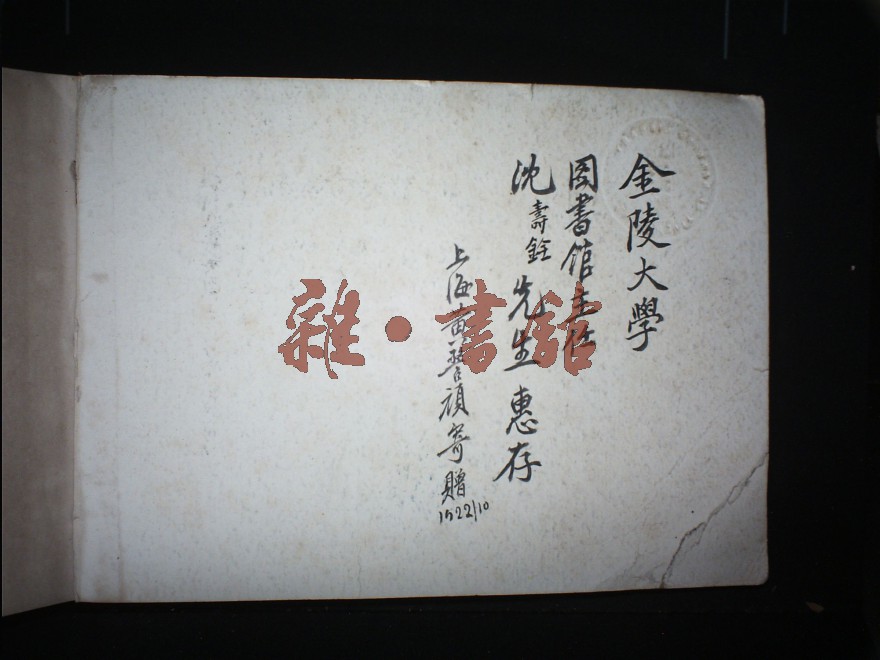 金陵大學
圕書館主任
沈壽銓先生惠存
上海黄警頑寄贈
1922/10
雜·書館